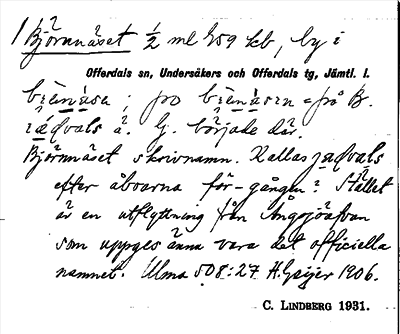 Björnnäset 1/2 ml 259 kb, by i
Offerdals sn, Undersåkers och Offerdals tg, Jämtl. l.
bᵢänäsa; po = på B.
rädvals ä. G. började där.
Björnnäset skrivnamn. Kallas radvals
efter åboarna för-gången? Stället
är en utflyttning från Ångsjöåsen
som uppges ännu vara det officiella
namnet. Ulma 508:27 H. Geijer 1906.
C. LINDBERG 1931.